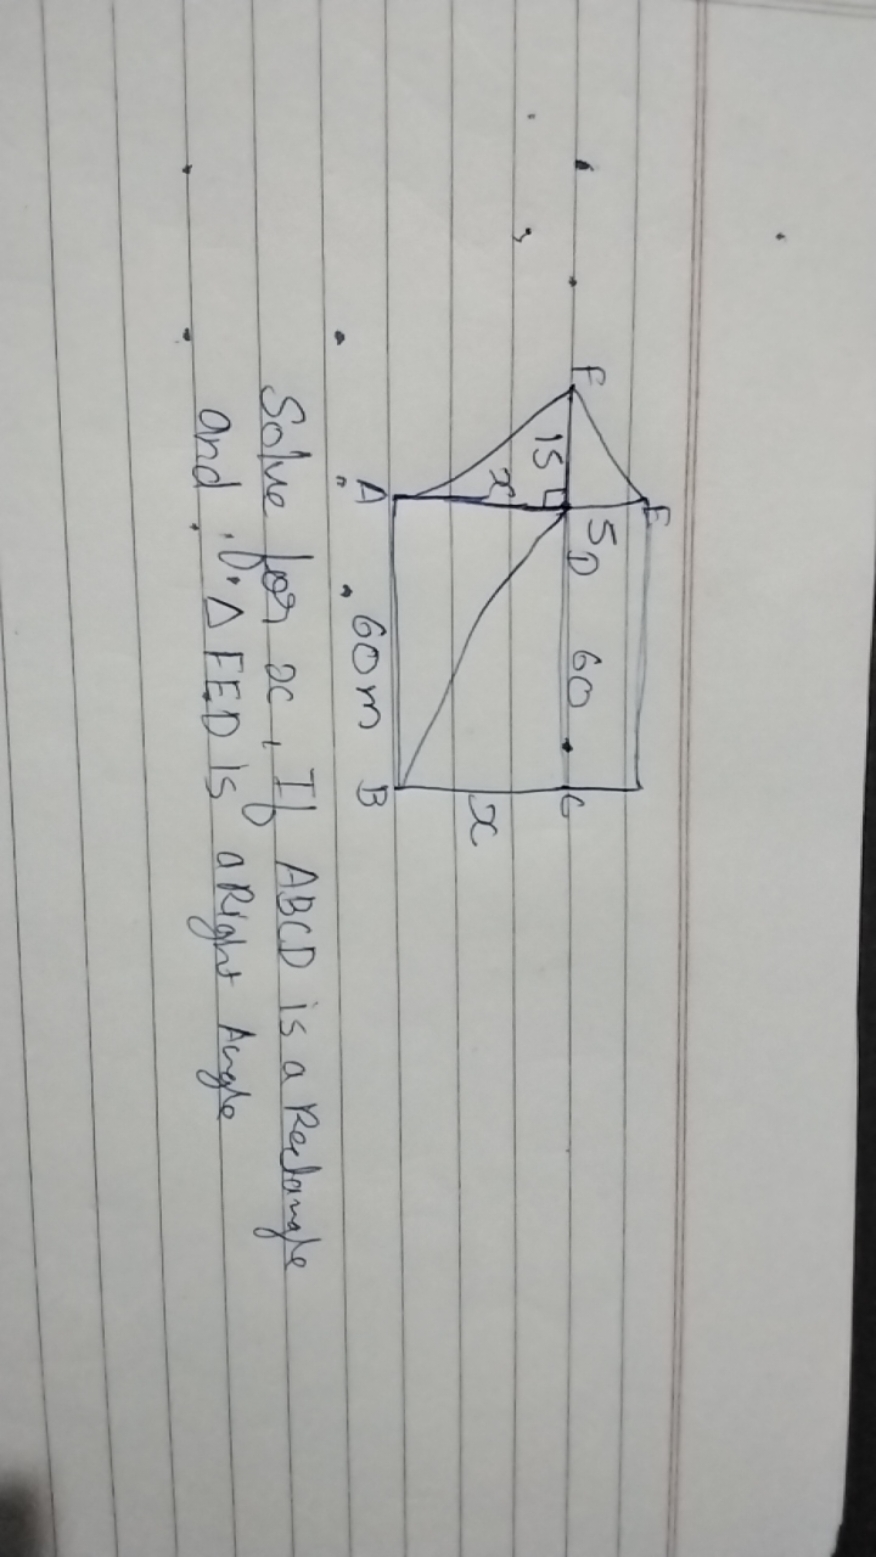 F
E
15
5
D
x
60
C
A
60m
B
x
Solve for x, If ABCD is a Rectangle
and Δ FED is a Right Angle